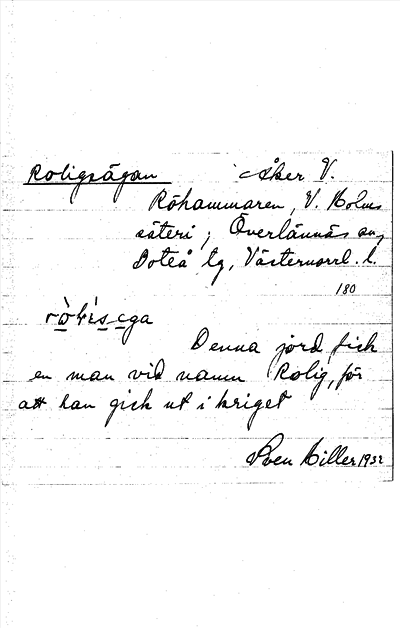 Roligsägan Åker V.
Röhammaren, V. Holms
säteri, Överlännäs sn,
Boteå tg, Västernorrl. l.
180
Denna jord fick
en man vid namn Rolig, för
att han gick ut i kriget
Sven Hiller 1932